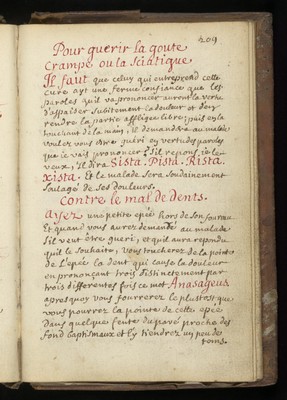 209
Pour guerir la goute
Crampe ou la Sciatique
Il faut que celuy qui entreprend cette
cure ayt une ferme confiance que les
paroles qu'il va prononcer auront la vertu
d'appaiser subitement la douleur et d'en
rendre la partie affligée libre; puis en la
touchant de la main, il demandera au malade
voulez vous être gueri en vertu des paroles
que je vais prononcer? S'il repond je le
veux, il dira Sista. Pista. Rista.
xista. Et le malade sera soudainement
soulagé de ses douleurs.
Contre le mal de Dents.
Ayez une petite epée hors de son fourreau
Et quand vous aurez demandé au malade
s'il veut être gueri, et qu'il aura repondu
qu'il le souhaite, vous toucherez de la pointe
de l'epée la dent qui cause la douleur
en prononçant trois fois distinctement par
trois differentes fois ce mot Anasageus
apres quoy vous fourrerez le plustost que
vous pourrez la pointe de cette epée
dans quelque fente du pavé proche des
fond baptismaux et l'y tiendrez un peu de
tems.